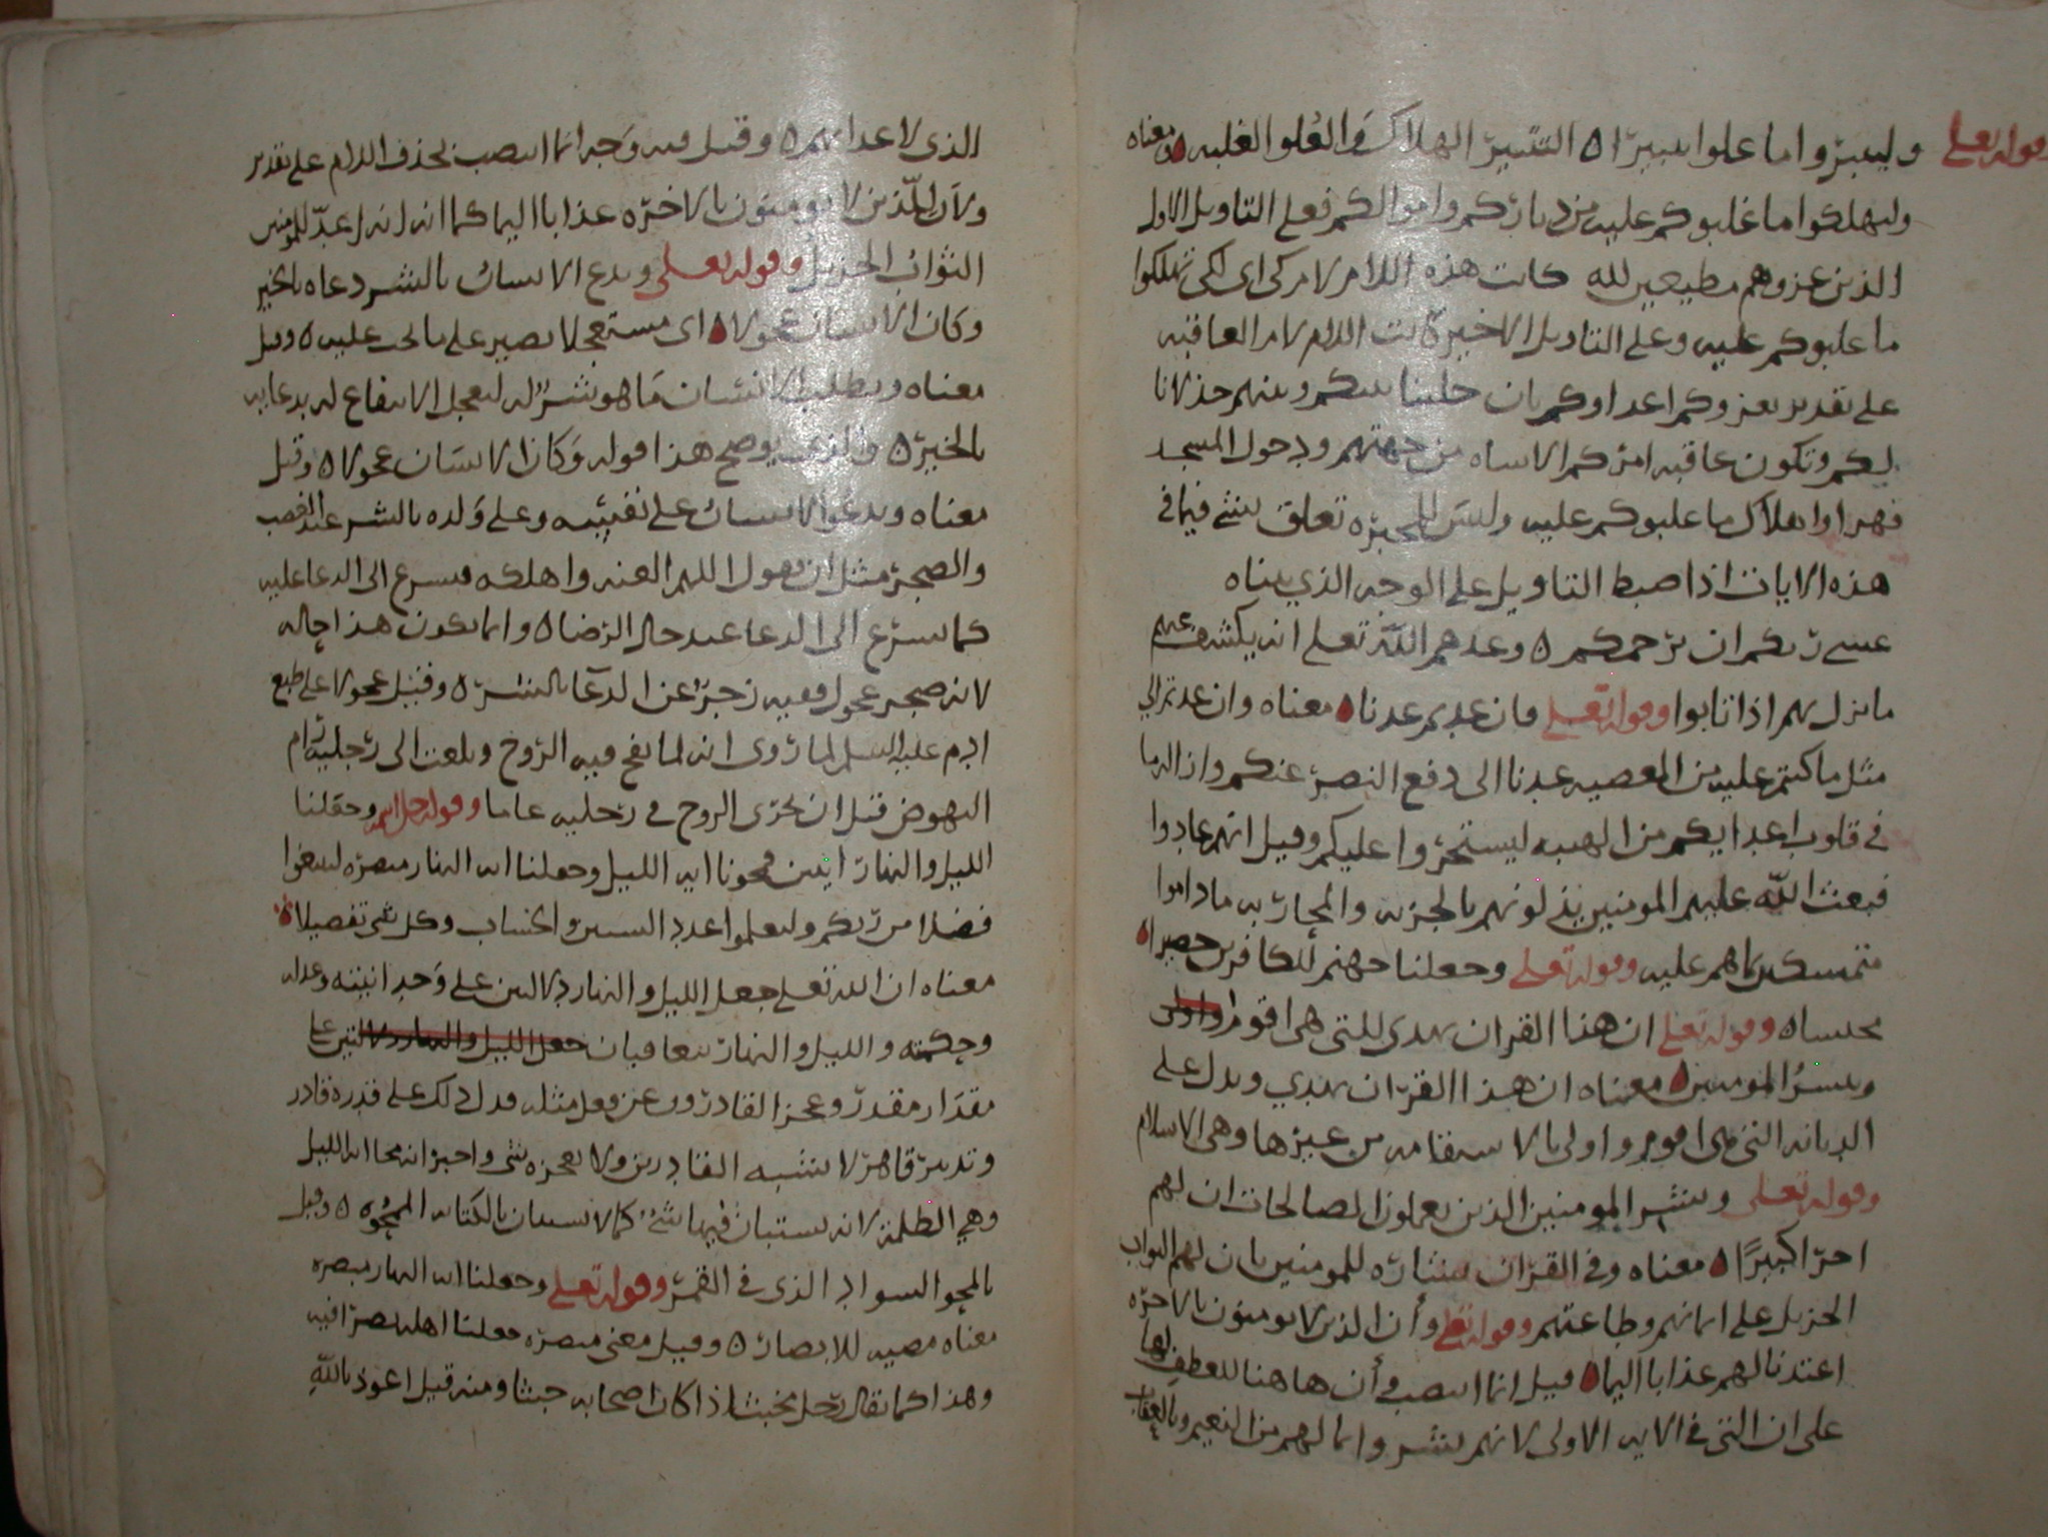 وقوله تعلى وليتبروا ما علوا تتبيرا ٥ التتبير الهلاك والعُلو الغلبه ٥ ومعناه
وليهلكوا ما غلبوكم عليه من دياركم واموالكم فعلى التاويل الاول
الذين غزوهم مطيعين لله كانت هذه اللام لام كى اى لكى تهلكوا
ما غلبوكم عليه وعلى التاويل الاخير اللام لام العاقبه
على تقدير يغزوكم اعداوكم بان خلينا بينكم وبينهم خذلانا
لكم وتكون عاقبه امركم الاساه من جهتهم ودخول المسجد
قهرا واهلاك ما غلبوكم عليه وليس للمجبره تعلق بشى فيما فى
هذه الايات اذا ضبط التاويل على الوجه الذي بيناه
عسى ربكم ان يرحمكم ٥ وعدهم الله تعلى انه يكشف عنهم
ما نزل بهم اذا تابوا وقوله تعلى وان عدتم عدنا ٥ معناه وان عدتم الى
مثل ما كنتم عليه من المعصيه عدنا الى دفع النصر عنكم
فى قلوب اعدايكم من الهيبه ليستجروا عليكم وقيل انهم عادوا
فبعث الله عليهم المومنين يذلونهم بالجزيه والمحاربه ماداموا
متمسكين بما هم عليه وقوله تعلى وجعلنا جهنم للكافرين حصيرا ٥
محبسا ٥ وقوله تعلى ان هذا القران يهدى للتى هى اقوم
ويبشر المومنين ٥ معناه ان هذا القران يهدي ويدل على
الديانه التى هى اقوم واولى بالاستقامه من غيرها وهى الاسلام
وقوله تعلى ويبشر المومنين الذين يعملون الصالحات ان لهم
اجرا كبيرًا ٥ معناه وفى القران بشاره للمومنين بان لهم الثواب
الجزيل على ايمانهم وطاعتهم وقوله تعلى وأن الذين لا يومنون بالاخره
اعتدنا لهم عذابا اليما ٥ قيل انما انتصب وأن هاهنا للعطف لها
على ان التى فى الايه الاولى لانهم بشروا بما لهم من النعيم وبالعقاب
الذى لاعدايهم ٥ وقيل فيه وجه انما انتصب بحذف اللام على تقدير
ولأن الّذين لا يومنون بالاخره عذابا اليما كما انه اعدّ للمومنين
الثواب الجزيل وقوله تعلى ويدع الانسان بالشر دعاه بالخير
وكان الانسان عجولا ٥ اى مستعجلا يصير على ما عليه ٥ وقيل
معناه ويطلب الانسان ما هو شرٌ له لتعجل الانتفاع له بدعايه
بالخير ٥ والذى يوضح هذا قوله وكان الانسان عجولا ٥ وقيل
معناه ويدعو الانسان على نفسه وعلى ولده بالشر عند الغضب
والضجر مثل ان يقول اللهم العنه واهلكه فيسرع الى الدعا عليه
كما يسرع الى الدعا عند حال الرضا ٥ وانما يكون هذا حاله
لانه ضجر عجول ففيه زجر عن الدعا بالشر ٥ وقيل عجولا على طبع
ادم عليه السلم لما روى انه لما نفخ فيه الروح وبلغت الى رجليه رام
النهوض قبل ان تجرى الروح فى رجليه وقوله جل اسمه وجعلنا
الليل والنهار ايتين فمحونا ايه الليل وجعلنا ايه النهار مبصره لتبتغوا
فضلا من ربكم ولتعلموا عدد السنين والحساب وكل شى تفصيلا ٥
معناه ان الله تعلى جعل الليل والنهار دلالتين على وحدانيته وعدله
وحكمته والليل والنهار يتعاقبان جعل الليل والنهار دلالتين على
مقدار مقدر وعجز القادرون عن فعل مثله فدل ذلك على قدرة قادر
وتدبير قاهر لا يشبه القادرين ولا يعجزه شى واخبر انه محا ايه الليل
وهي الظلمة لانه يستبان فيها شىٌ كما لا يستبان بالكتاب الممحو ٥ وقيل
بالمحو السواد الذى فى القمر وقوله تعلى وجعلنا ايه النهار مبصره
معناه مضيه للابصار ٥ وقيل معنى مبصره جعلنا اهله بصرا فيه
وهذا كما يقال رجل مخبث اذا كان اصحابه خبثا ومنه قيل اعوذ بالله